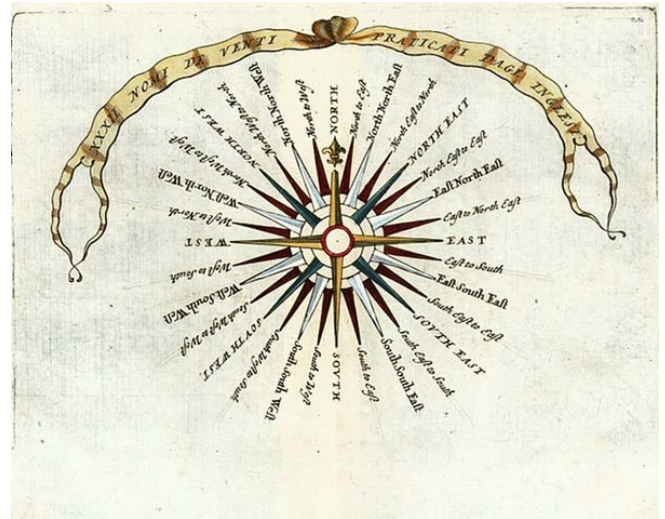 XXXII NOMI DE VENTI PRATICATI DAGL' INGLESI
NORTH
North to East
North North East
North East to North
NORTH EAST
North East to East
East North East
East to North East
EAST
East to South
East South East
South East to East
SOVTH EAST
South East to South
South South East
South to East
SOVTH
South to West
South South West
South West to South
SOVTH WEST
South West to West
West South West
West to South
WEST
West to North
West North West
North West to West
NORTH WEST
North West to North
North North West
North to West